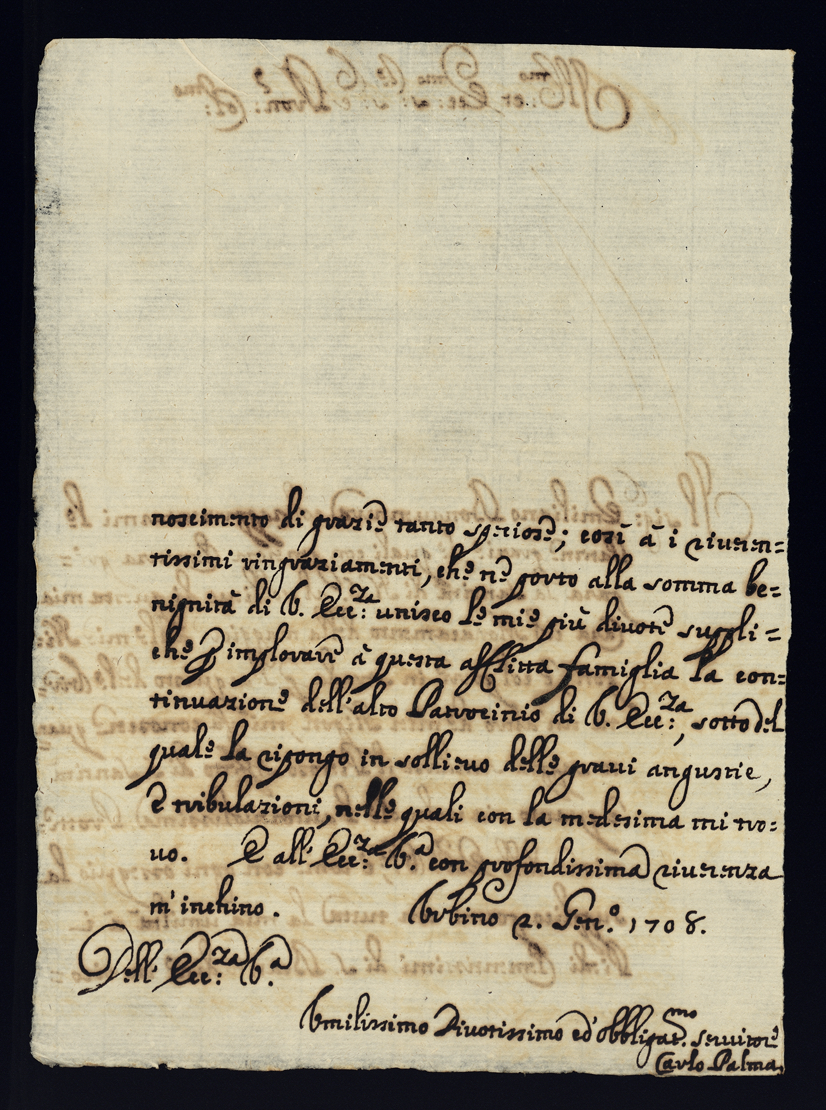 noscimento di grazie tanto speziose; così à i riueren=
tissimi ringraziamenti, che ne porto alla somma be=
nignità di V. Ecc:za unisco le mie più divote suppli=
che P implorare à questa afflitta famiglia la con=
tinuazione dell'alto Patrocinio di V. Ecc:za, sotto del
quale la ripongo in sollieuo delle graui angustie,
e tribulazioni, nelle quali con la medesima mi tro=
uo. E all' Ecc:za V.a con profondissima riuerenza
m'inchino. Vrbino 2. Gen.o 1708.
Dell' Ecc:za V.a
Vmilissimo Diuotissimo ed' obbligat.mo seruitore
Carlo Palma